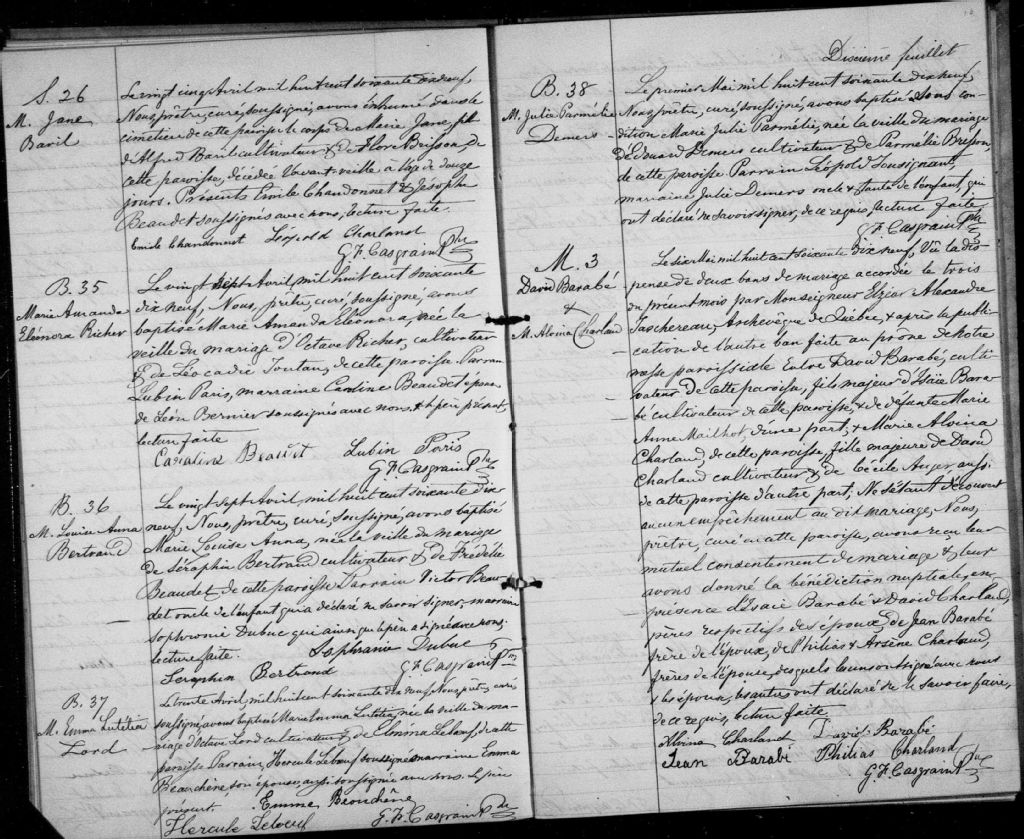 S. 26
M. Jane
Baril
Le vingt cinq Avril mil huit cent soixante dix neuf,
Nous, prêtre, curé, soussigné, avons inhumé dans le
cimetière de cette paroisse le corps de Marie Jane, fille
d'Alfred Baril cultivateur & de Flore Brisson, de
cette paroisse, décédée l'avant veille à l'âge de douze
jours. Présents Emile Chandonnet & Joseph
Beaudet soussignés avec nous, lecture faite.
Emile Chandonnet Léopold Charland
G. F. Casgrain Ptre
B. 35
Marie Amanda
Eléonora Richer
Le vingt sept Avril, mil huit cent soixante
dix neuf, Nous, prêtre, curé, soussigné, avons
baptisé Marie Amanda Eléonora, née la
veille du mariage d'Octave Richer, cultivateur
& de Léocadie Toutan, de cette paroisse Parrain
Lubin Paris, marraine Caroline Beaudet épouse
de Léon Bernier soussignés avec nous, & le père présent,
lecture faite
Caroline Beaudet Lubin Paris
G. F. Casgrain Ptre
B. 36
M. Louise Anna
Bertrand
Le vingt sept Avril, mil huit cent soixante dix
neuf, Nous, prêtre, curé, soussigné, avons baptisé
Marie Louise Anna, née la veille du mariage
de Séraphin Bertrand cultivateur & de
Beaudet de cette paroisse Parrain Victor Beau-
det oncle de l'enfant qui a déclaré ne savoir signer, marraine
Sophronie Dubuc qui ainsi que le père a signé avec nous.
lecture faite. Sophranie Dubuc
Seraphin Bertrand G. F. Casgrain Ptre
B. 37
M. Emma Lutétia
Lord
Le trente Avril, mil huit cent soixante dix neuf, Nous, prêtre, curé,
soussigné, avons baptisé Marie Emma Lutétia, née la veille du ma-
riage d'Octave Lord cultivateur & de Emma Lebeuf, de cette
paroisse Parrain, Hercule Lebœuf soussigné, marraine Emma
Beauchêne son épouse, aussi soussignée avec nous. Le père
présent Emma Beauchêne
Hercule Lebœuf G. F. Casgrain Ptre
Dixième feuillet
B. 38
M. Julie Parmélie
Demers
Le premier Mai mil huit cent soixante dix neuf,
Nous, prêtre, curé, soussigné, avons baptisé sous con-
dition Marie Julie Parmélie, née la veille du mariage
d'Edouard Demers cultivateur & de Parmélie Brisson,
de cette paroisse Parrain Léopold Tousignant
marraine Julie Demers oncle & tante de l'enfant, qui
ont déclaré ne savoir signer, de ce requis, lecture faite
G. F. Casgrain Ptre
M. 3
David Barabé
&
M. Alvina Charland
Le six Mai mil huit cent soixante dix neuf, Vu la dis-
pense de deux bans de mariage accordée le trois
du présent mois par Monseigneur Elzéar Alexandre
Taschereau, Archevêque de Québec, & après la publi-
cation de l'autre ban faite au prône de notre
messe paroissiale entre David Barabé, culti-
vateur de cette paroisse, fils majeur d'Isaïe Bara-
bé cultivateur de cette paroisse, & de défunte Marie
Anne Mailhot, d'une part; & Marie Alvina
Charland, de cette paroisse, fille majeure de David
Charland cultivateur & de Cécile Auger, aussi
de cette paroisse d'autre part; Ne s'étant découvert
aucun empêchement au dit mariage, Nous,
prêtre, curé de cette paroisse, avons reçu leur
mutuel consentement de mariage & leur
avons donné la bénédiction nuptiale, en
présence d'Isaïe Barabé & David Charland,
pères respectifs des époux, de Jean Barabé
frère de l'époux, de Philias & Arsène Charland,
frères de l'épouse, desquels les uns ont signé avec nous
& les époux, les autres ont déclaré ne le savoir faire,
de ce requis, lecture faite
Alvina Charland David Barabé
Jean Barabé Philias Charland
G. F. Casgrain Ptre